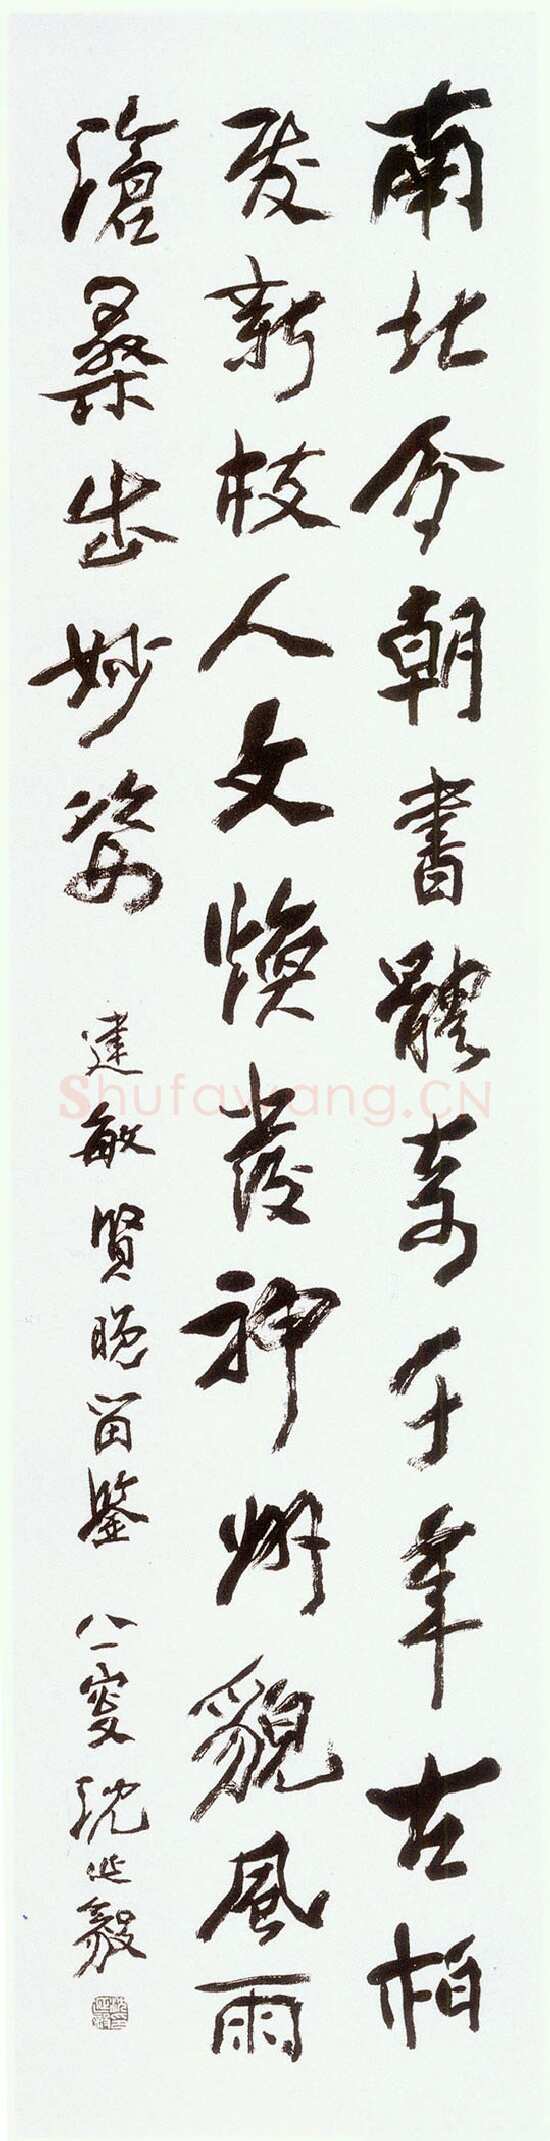 南北今朝書體奇千年古柏
发新枝人文煥發神州貌風雨
滄桑出妙姿
建敏賢晚留鑒 八一叟沈延毅
Shufawang.CN